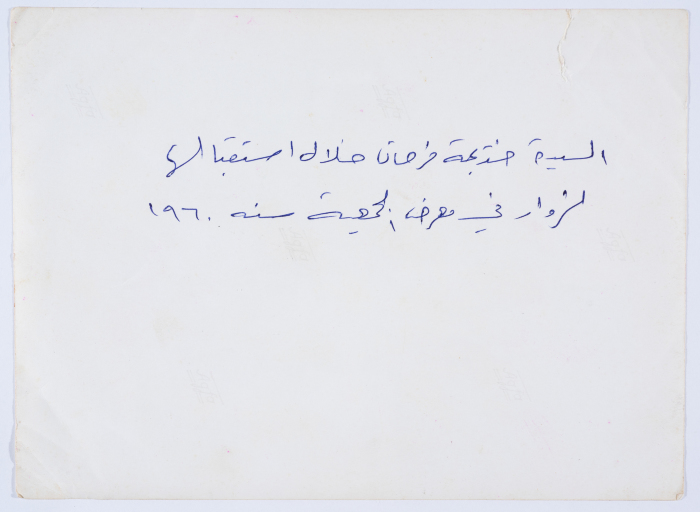 السيدة خديجة فرحات خلال استقبالها
لزوار في معرض الجمعية سنه ١٩٦٠